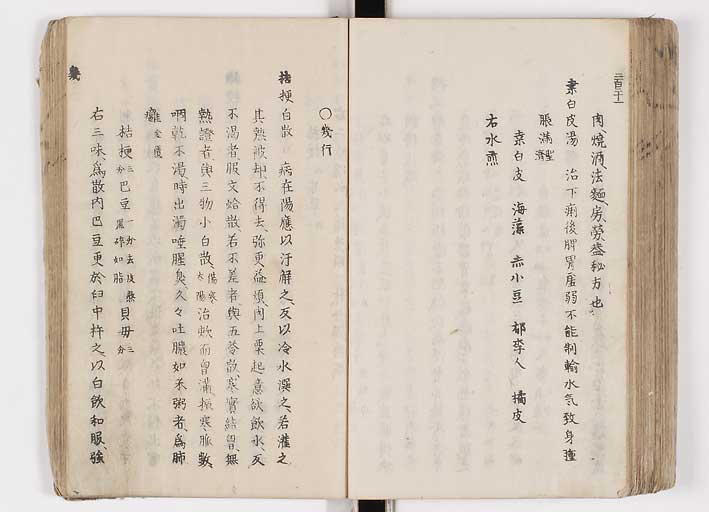 三百二十二
肉、燒酒、法麵、房勞、盖秘方也、
桑白皮湯 治下痢後脾胃虛弱不能制輸水気致身踵
脹滿 聖濟
桑白皮 海藻 赤小豆 郁李人 橘皮
右水煎
○幾行
桔梗白散 病在陽應以汗解之反以冷水潠之若灌之
其熱被却不得去、弥更益煩、肉上粟起意欲飲水反
不渴者、服文蛤散、若不差者、與五苓散、寒實結胸、無
熱證者、與三物小白散、傷寒太陽 治欬而胸滿、振寒脈數、
咽乾不渴、時出濁唾腥臭、久々吐膿如米粥者、爲肺
癰 金匱
桔梗 三分 巴豆 一分去皮熬黑碎如脂 貝毋 三分
右三味、爲散、内巴豆、更於臼中杵之、以白飲和服、強
幾